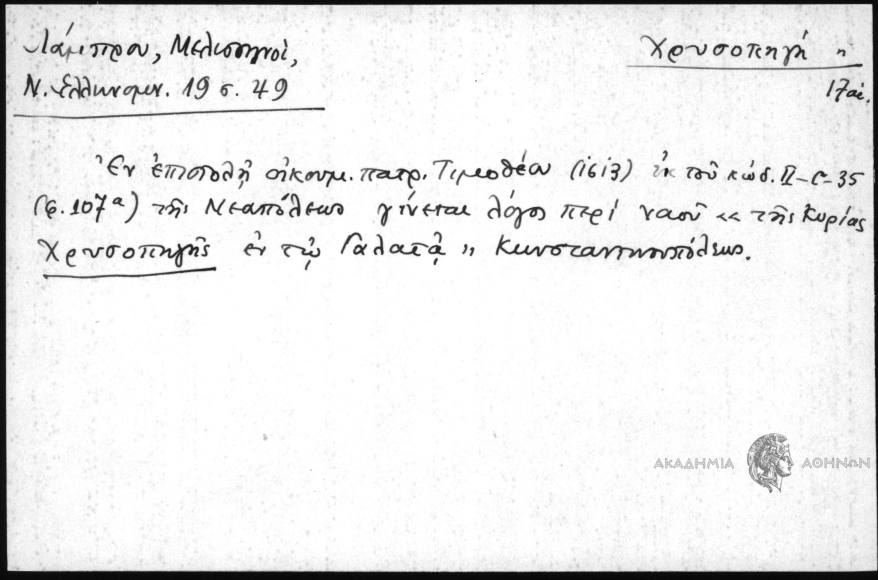 Λάμπρου, Μελισσηνοί,
Χρυσοπηγή η
Ν. Ἑλληνομν. 19 σ. 49
17 αἰ.
Ἐν ἐπιστολῇ οἰκουμ. πατρ. Τιμοθέου (1613) ἐκ τοῦ κώδ. II-C-35
(φ. 107α) τῆς Νεαπόλεως γίνεται λόγος περί ναοῦ «τῆς Κυρίας
Χρυσοπηγῆς ἐν τῷ Γαλατᾷ» Κωνσταντινουπόλεως.
ΑΚΑΔΗΜΙΑ ΑΘΗΝΩΝ